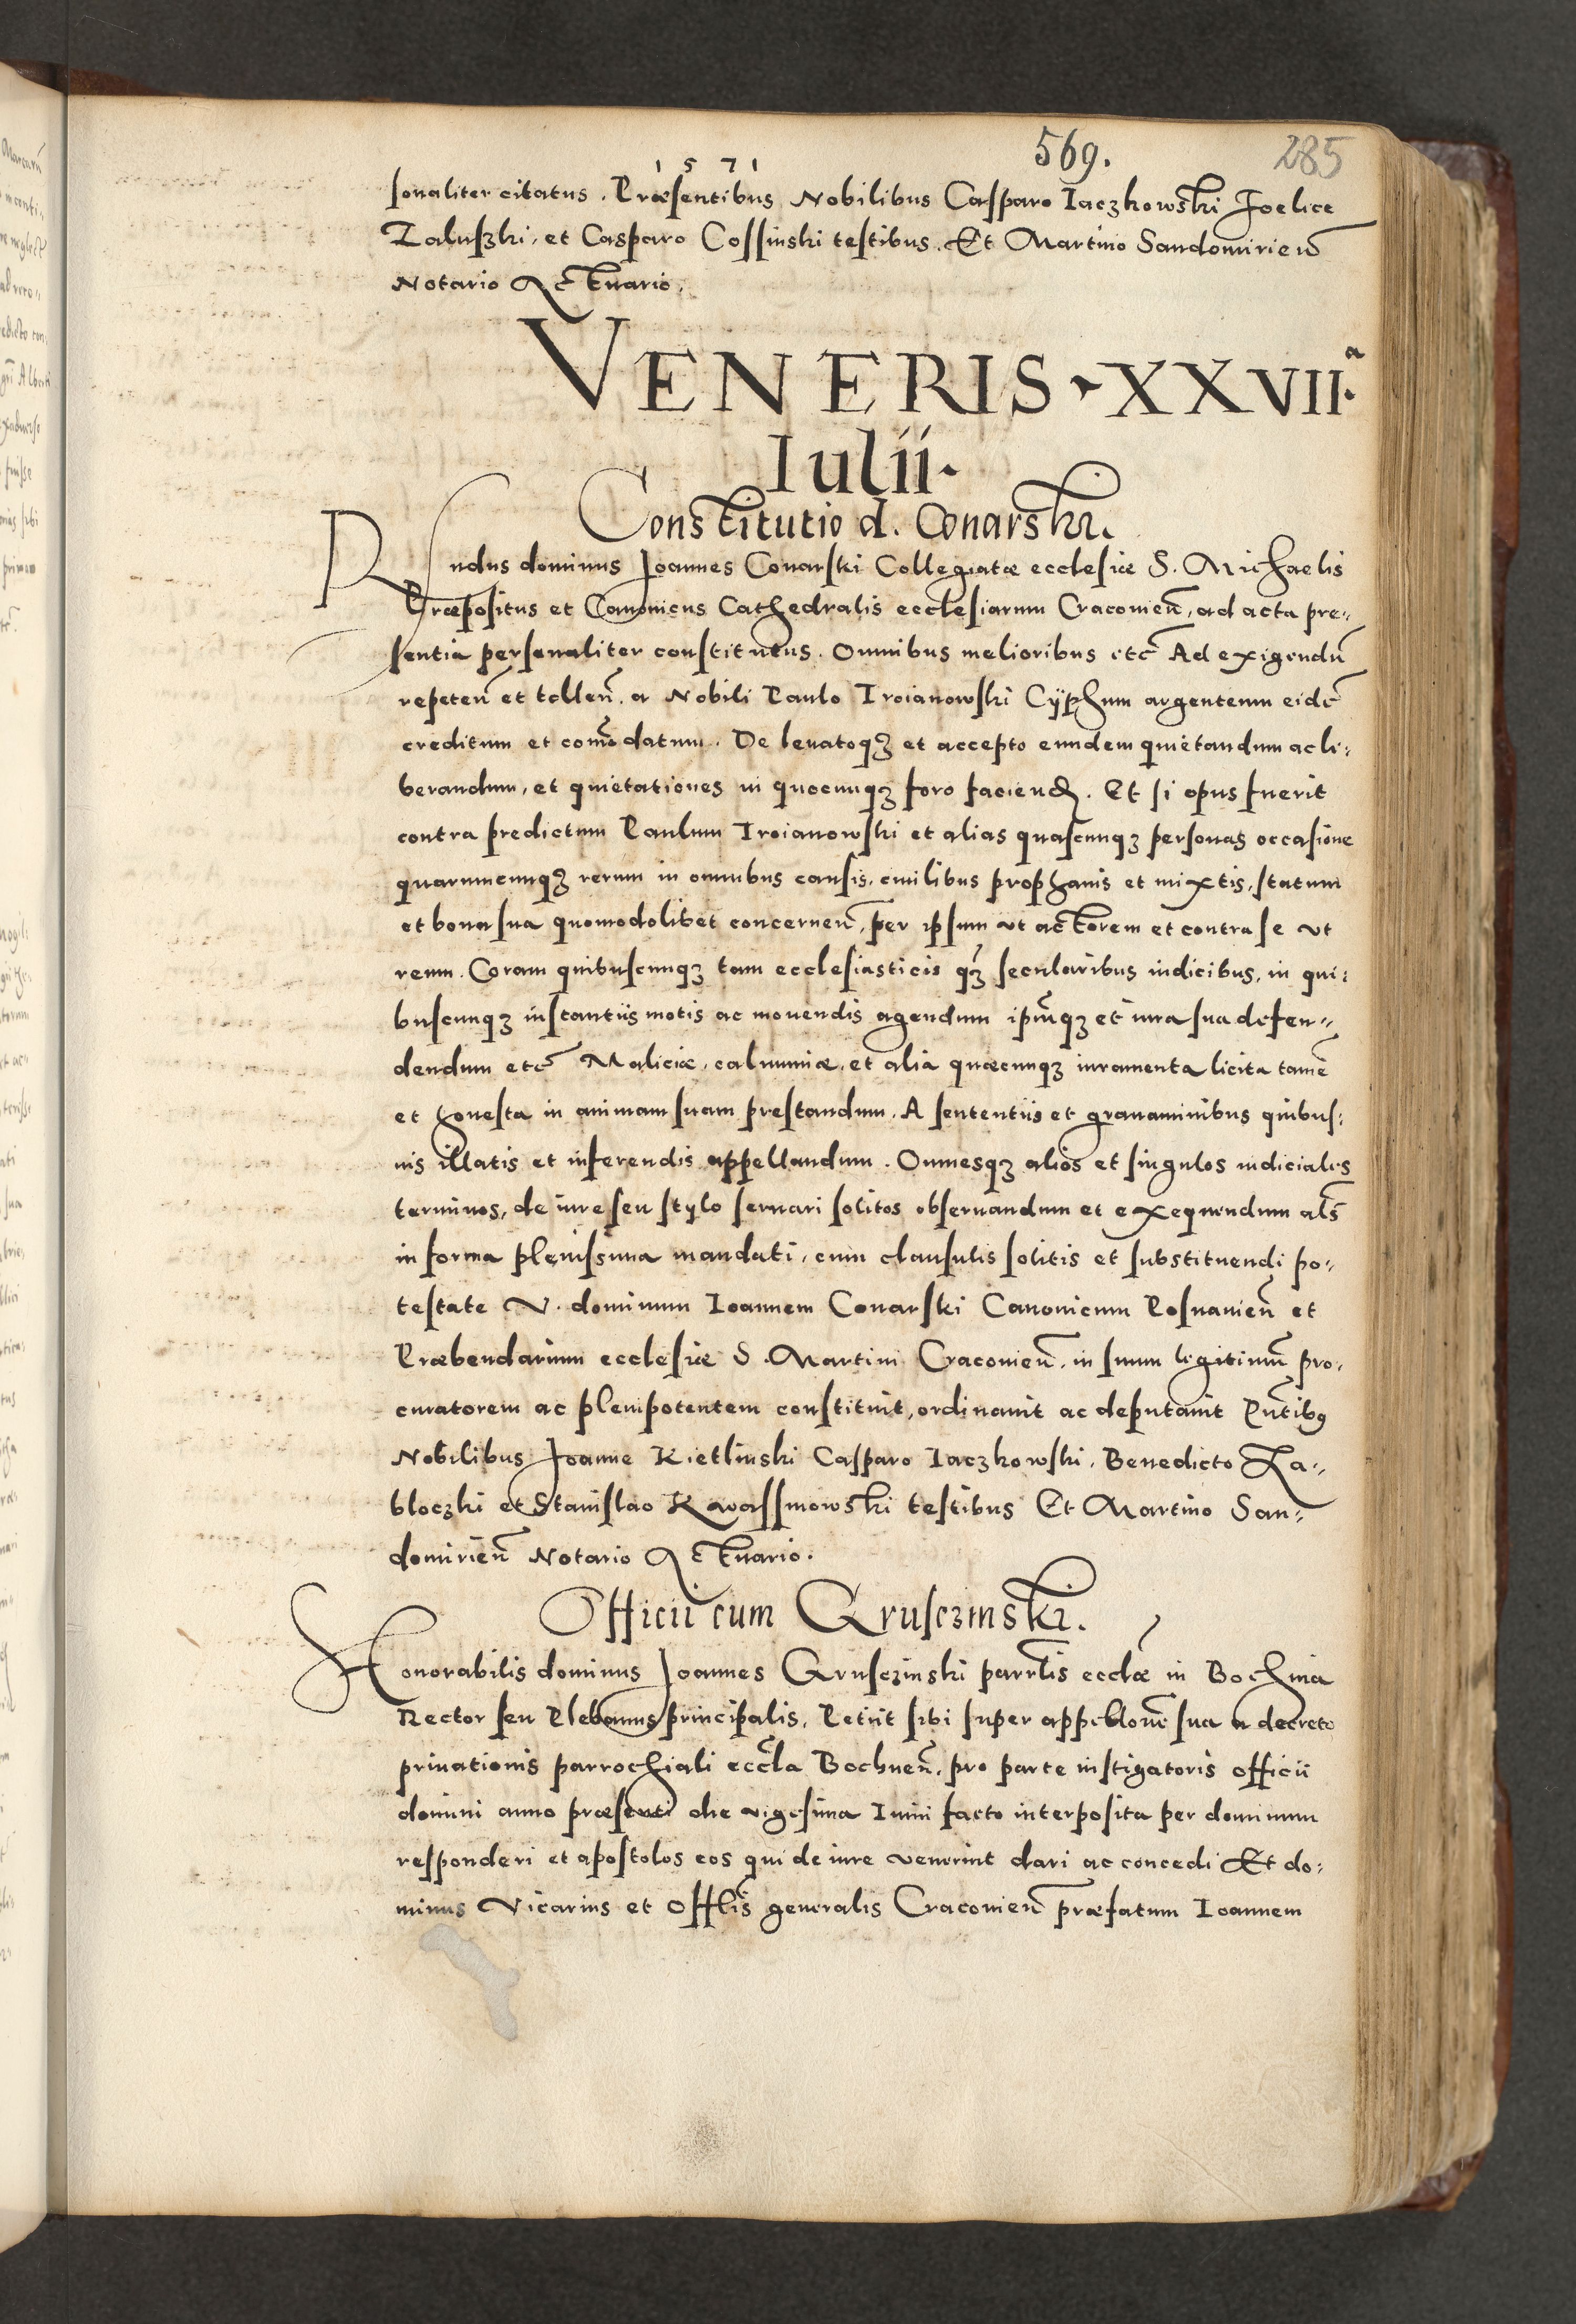 569. 285
1571
sonaliter citatus. Præsentibus Nobilibus Casparo Iaczkowski Foelice
Zaluszki, et Casparo Cossinski testibus. Et Martino Sandomirieñ
Notario Actuario.
VENERIS XXVII.ª
Iulii.
Constitutio d. Conarski.
Rndus dominus Joannes Conarski Collegiatæ ecclesiæ S. Michaelis
Præpositus et Canonicus Cathedralis ecclesiarum Cracovieñ, ad acta pre„
sentia personaliter constitutus. Omnibus melioribus etc̃ Ad exigendũ
repeteñ et tolleñ. a Nobili Paulo Troianowski Cÿphum argenteum eidẽ
creditum et com̃odatum. De leuatoqȝ et accepto eundem quietandum ac li:
berandum, et quietationes in quocunqȝ foro faciend̃. Et si opus fuerit
contra predictum Paulum Troianowski et alias quascunqȝ personas occasione
quarumcunqȝ rerum in omnibus causis, ciuilibus prophanis et mixtis, statum
et bona sua quomodolibet concerneñ, per ipsum ut actorem et contra se ut
reum. Coram quibuscunqȝ tam ecclesiasticis qȝ̃ secularibus iudicibus, in qui:
buscunqȝ instantiis motis ac mouendis agendum ip̃mqȝ et iura sua defen„
dendum etc̃ Maliciæ, calumniæ, et alia quæcunqȝ iuramenta licita tamẽ
et honesta in animam suam prestandum. A sententiis et grauaminibus quibus:
uis illatis et inferendis appellandum. Omnesqȝ alios et singulos iudiciales
terminos, de iure seu stylo seruari solitos obseruandum et exequendum al̃s
in forma plenissima mandati, cum clausulis solitis et substituendi po„
testate V. dominum Ioannem Conarski Canonicum Posnanieñ et
Præbendarium ecclesiæ S. Martini Cracovieñ. in suum legitimũ pro„
curatorem ac plenipotentem constituit, ordinauit ac deputauit Pñtibꝰ
Nobilibus Joanne Kietlinski Casparo Iaczkowski, Benedicto Za„
bloczki et Stanislao Kwassniowski testibus Et Martino San„
domirieñ Notario Actuario.
Officii cum Grusczinski.
Honorabilis dominus Joannes Grusczinski parrl̃is eccl̃æ in Bochnia
Rector seu Plebanus principalis, Petiit sibi super appellõne sua a decreto
priuationis parrochiali ecc̃la Bochneñ. pro parte instigatoris officii
domini anno præsenti die vigesima Iunii facto interposita per dominum
responderi et apostolos eos qui de iure venerint dari ac concedi Et do:
minus Vicarius et Offl̃is generalis Cracovieñ præfatum Ioannem